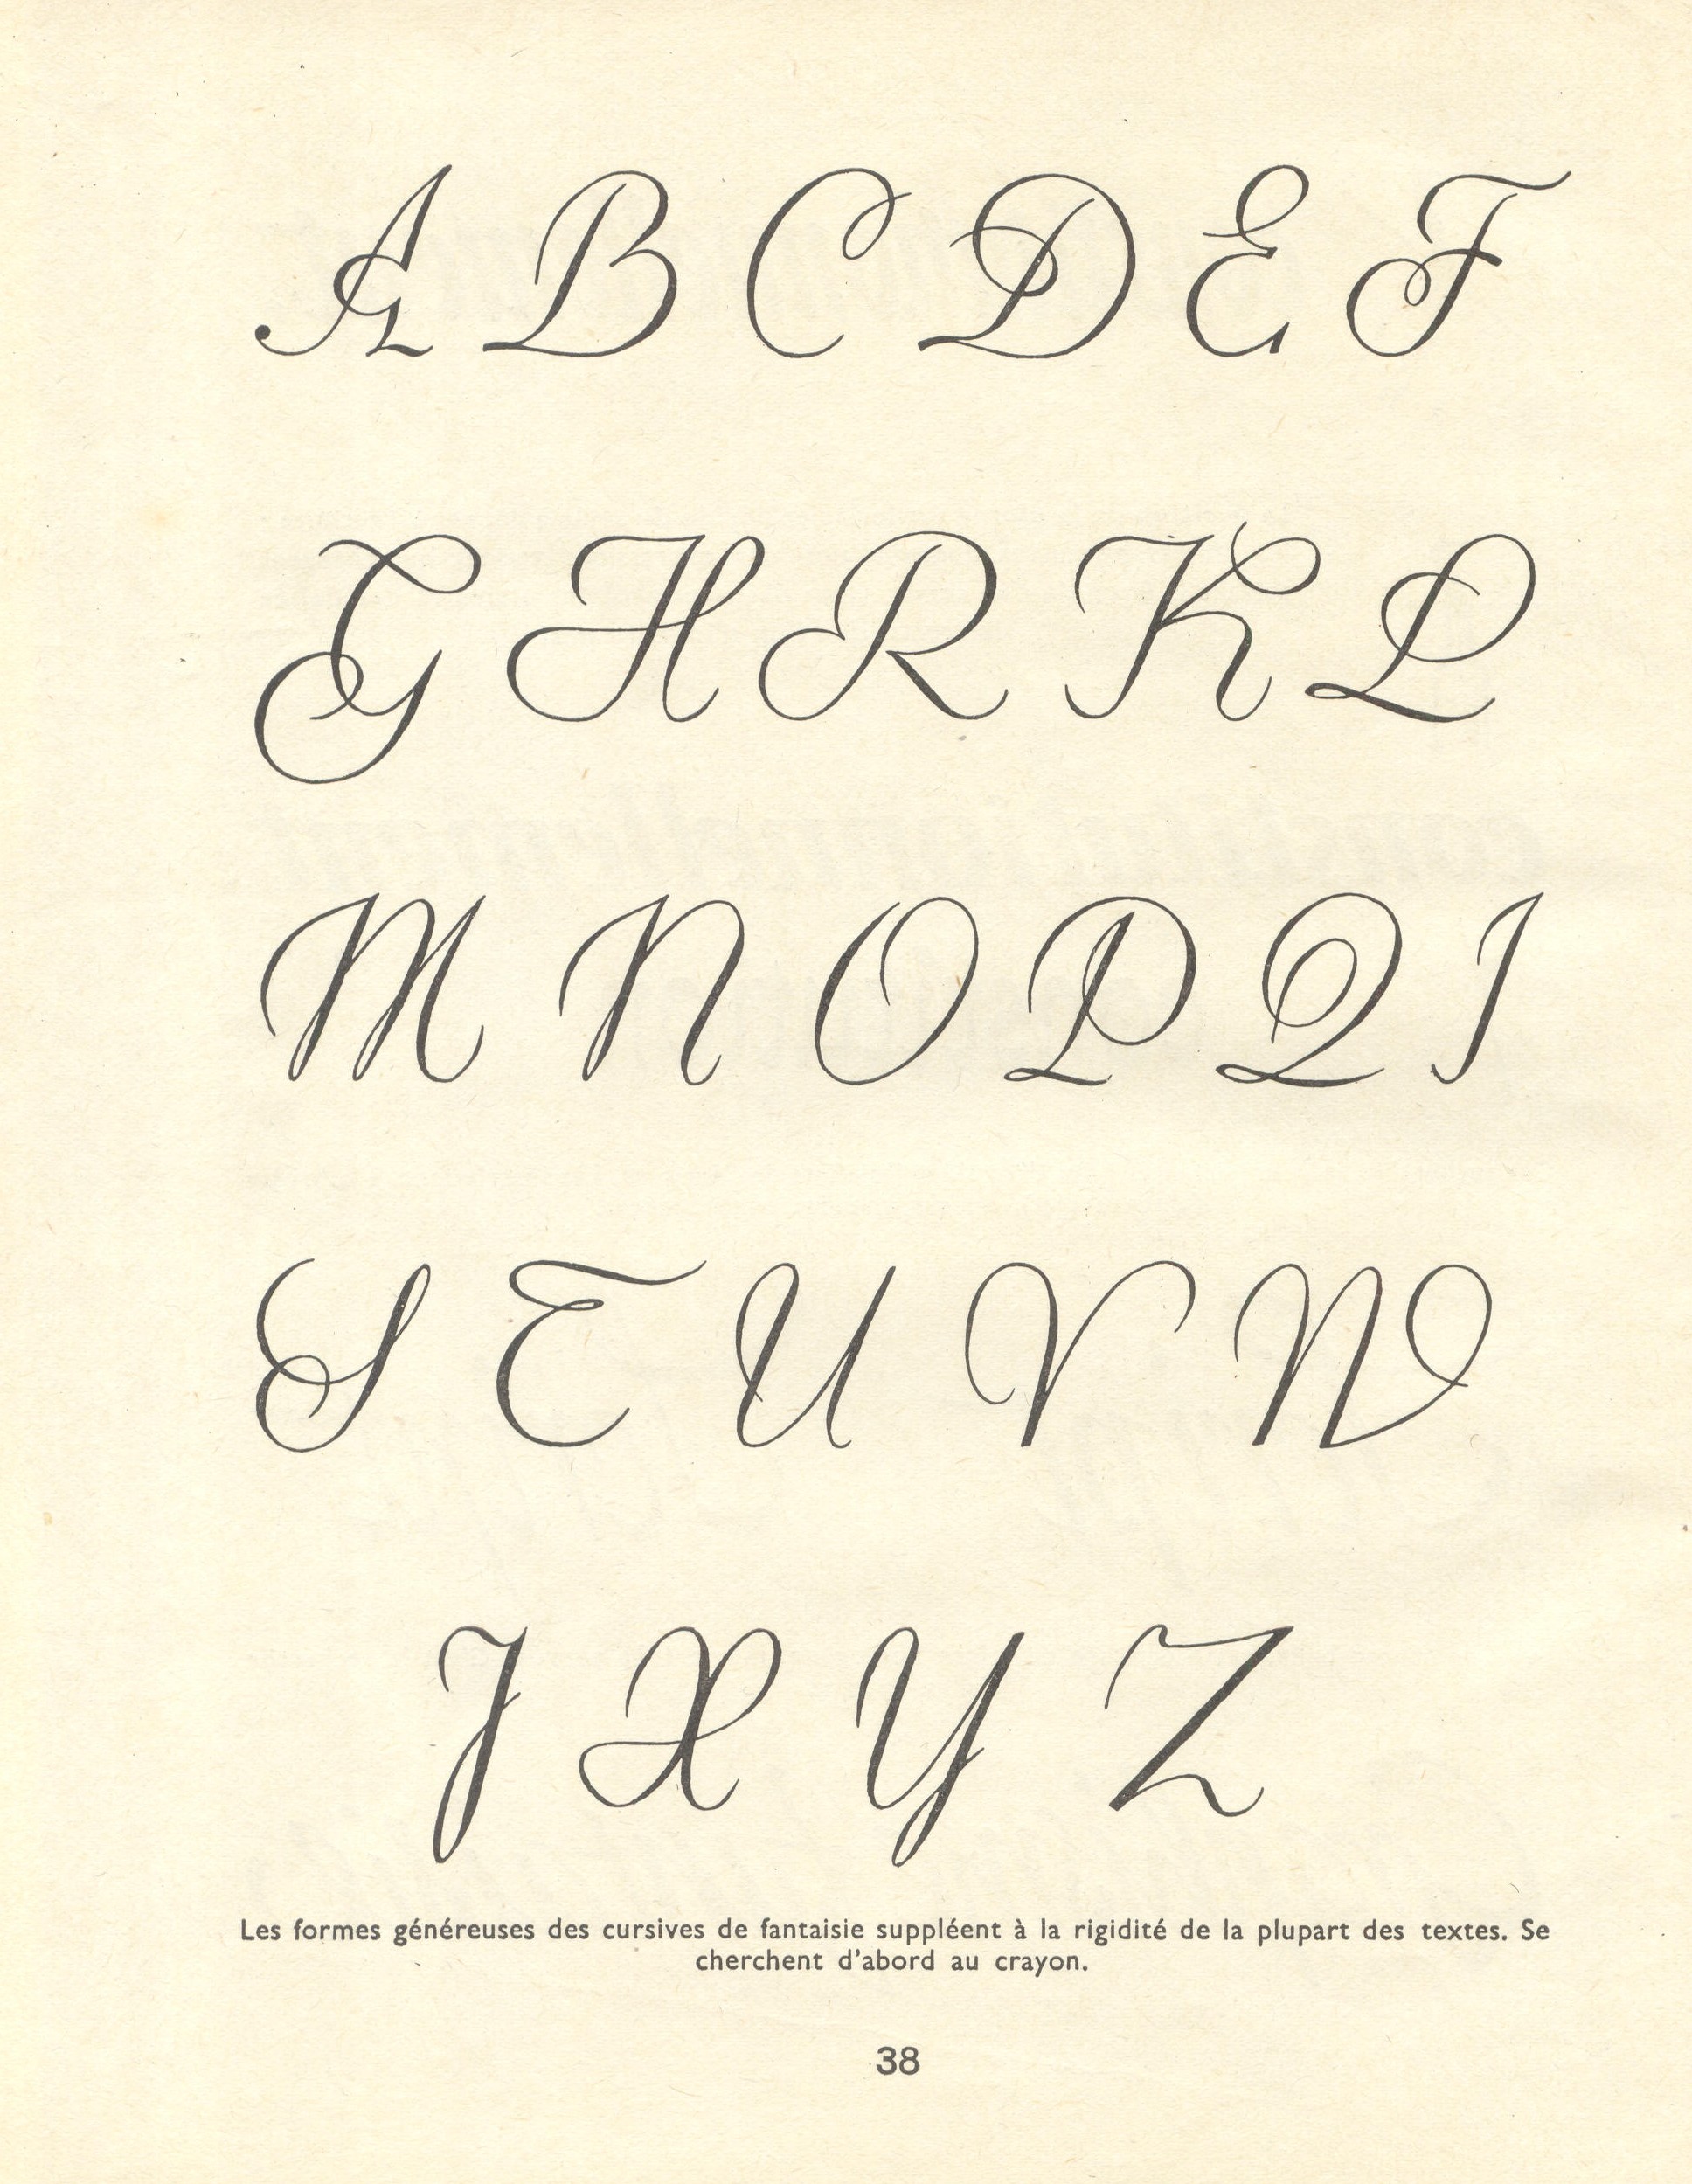 A B C D E F
G H R K L
M N O P Q I
S T U V W
J X Y Z
Les formes généreuses des cursives de fantaisie suppléent à la rigidité de la plupart des textes. Se
cherchent d'abord au crayon.
38